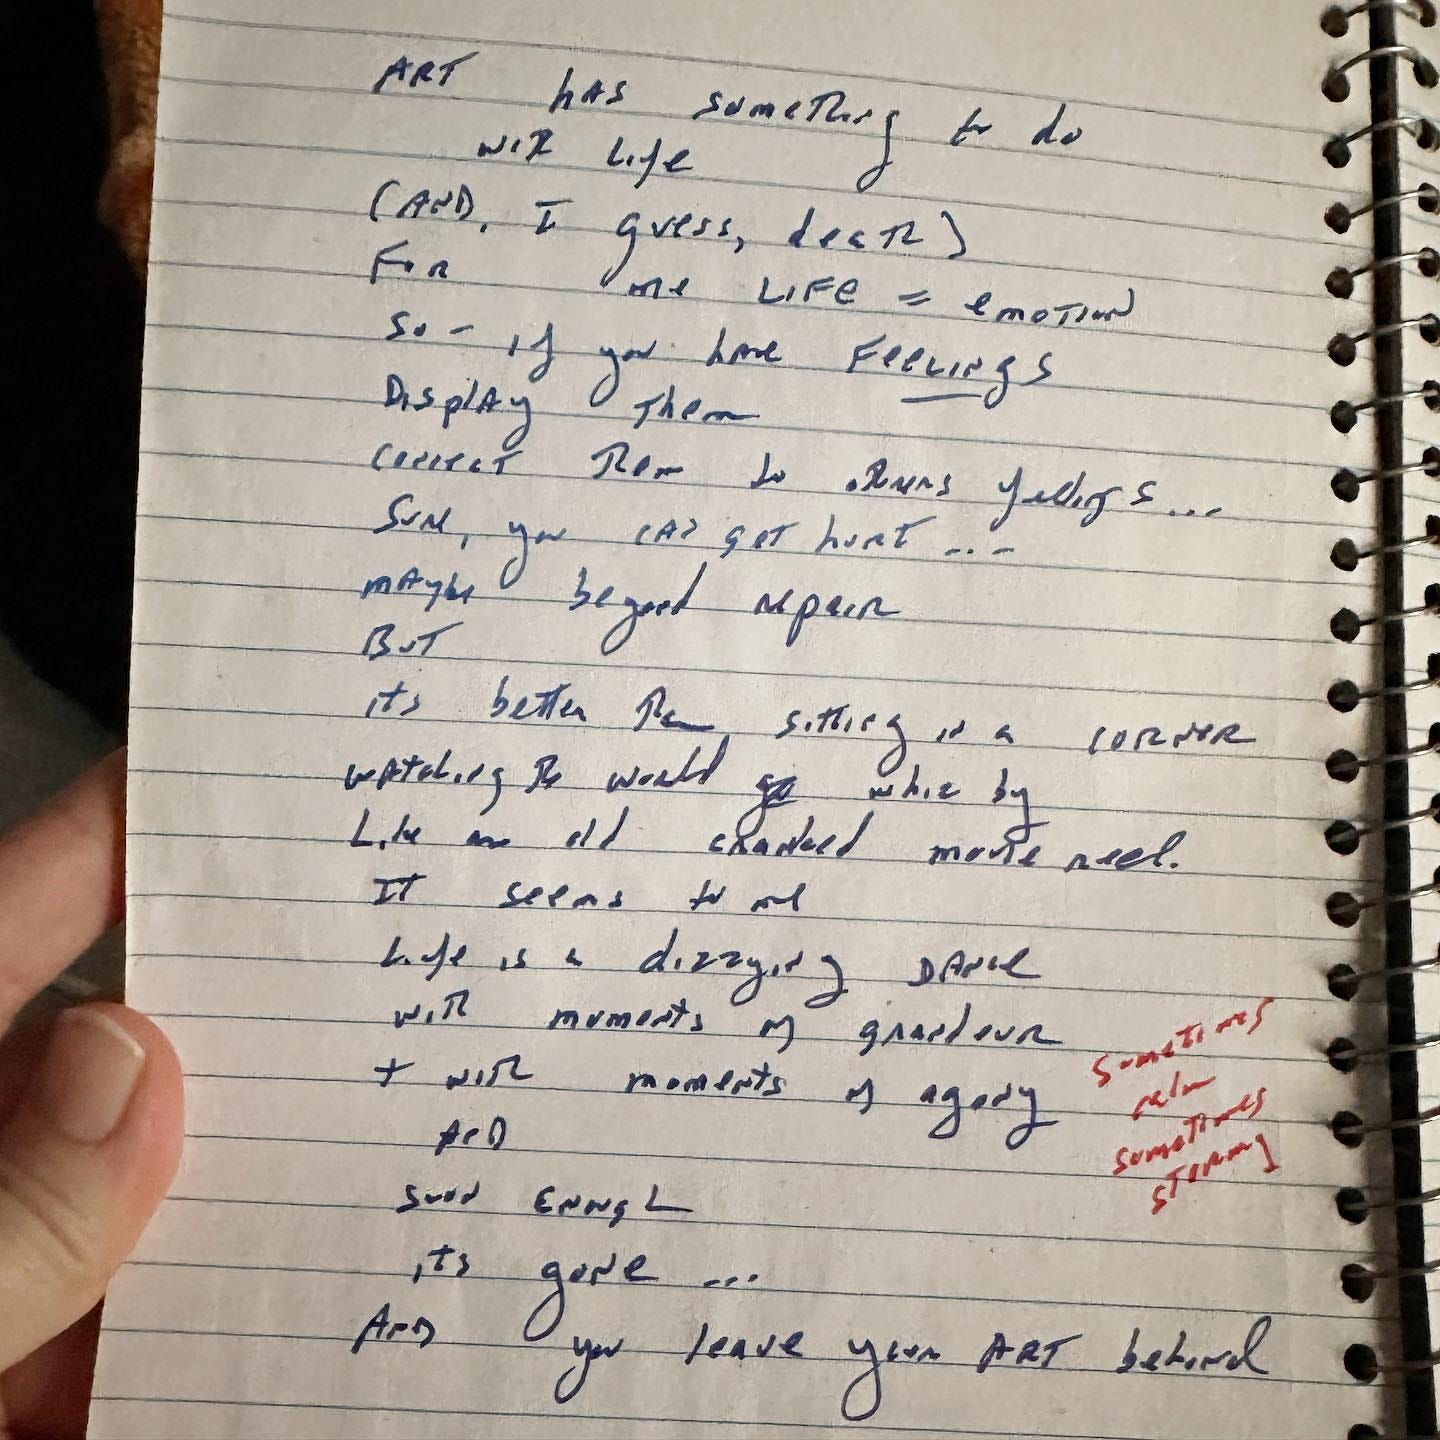 ART has something to do
with Life
(AND, I guess, death)
For me LIFE = emotion
So - if you have FEELINGS
Display them
connect them to others feelings...
Sure, you can get hurt ...
maybe beyond repair
BUT
its better than sitting in a CORNER
watching the world go whiz by
Like an old cranked movie reel.
IT seems to me
Life is a dizzying DANCE
with moments of grandeur
+ with moments of agony
AND
soon Enough
its gone ...
AND you leave your ART behind
Sometimes
calm
sometimes
stormy